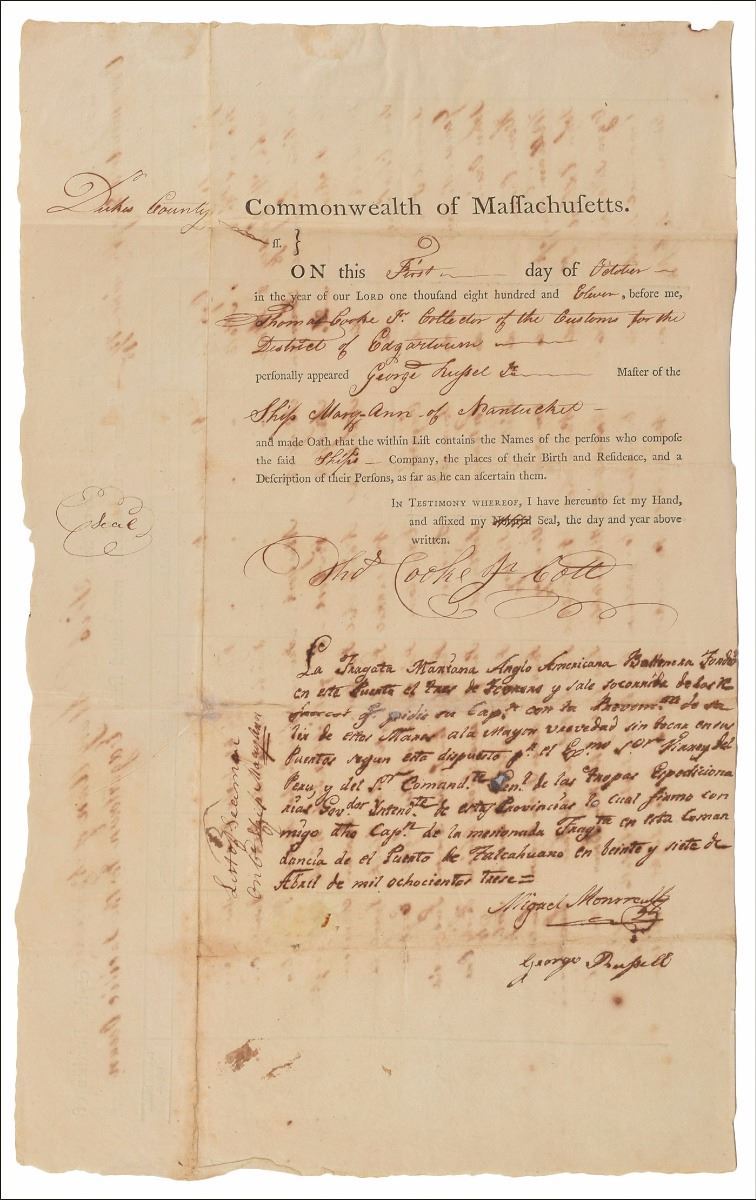 Dukes County
Commonwealth of Maſſachuſetts.
ſſ. }
ON this First day of October
in the year of our LORD one thouſand eight hundred and Eleven, before me,
Thomas Cooke Jr. Collector of the Customs for the
District of Edgartown
perſonally appeared George Ruſsel Jr. Maſter of the
Ship Mary-Ann of Nantucket
and made Oath that the within Liſt contains the Names of the perſons who compoſe
the ſaid Ship's Company, the places of their Birth and Reſidence, and a
Deſcription of their Perſons, as far as he can aſcertain them.
IN TESTIMONY WHEREOF, I have hereunto ſet my Hand,
and affixed my Seal, the day and year above
written.
Seal
Thos. Cooke Jr Coll
La Fragata Mariana Anglo Americana Ballenera Fondeó
en este Puerto el tres de y sale socorrida de los
qe. pidio su Capn. con la de sa
lir de estos Mares a la Mayor vrevedad sin tocar en sus
Puertos segun esta dispuesto pr. el Exmo. Sor. Virrey del
Peru, y del Sr. Comandte. Genl. de las Tropas Espediciona
rias Govdor. Intendte. de estas Provincias lo cual firmo con
migo dho Capn. de la mensionada Fragta. en esta Coman
dancia de el Puerto de Talcahuano en beinte y siete de
Abril de mil ochocientos trese=
Migael Monrreal
George Ruſsell
List of Seamen
on bd. Ship Mary Ann